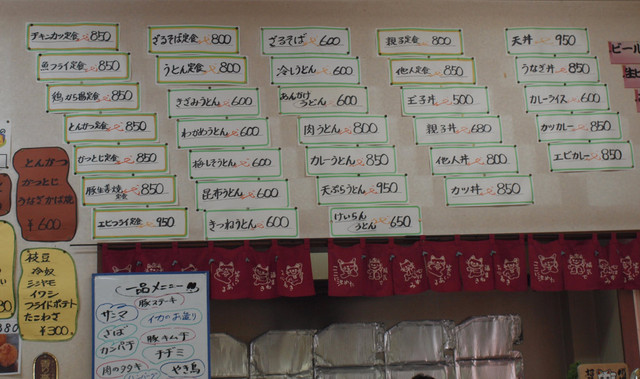 チキンカツ定食 850
魚フライ定食 850
鶏から揚定食 850
とんかつ定食 850
かつとじ定食 850
豚生姜焼定食 850
エビフライ定食 950
ざるそば定食 800
うどん定食 800
きざみうどん 600
わかめうどん 600
梅しそうどん 600
昆布うどん 600
きつねうどん 600
ざるそば 600
冷しうどん 600
あんかけうどん 600
肉うどん 800
カレーうどん 850
天ぷらうどん 950
けいらんうどん 650
親子定食 800
他人定食 850
玉子丼 500
親子丼 680
他人丼 800
カツ丼 850
天丼 950
うなぎ丼 850
カレーライス 600
カツカレー 850
エビカレー 850
ビール
とんかつ
かつとじ
うなぎかば焼
¥600
枝豆
冷奴
シシャモ
イワシ
フライドポテト
たこわさ
¥300
一品メニュー
豚ステーキ
サンマ
イカのお造り
さば
豚キムチ
カンパチ
チヂミ
肉のタタキ
やき鳥